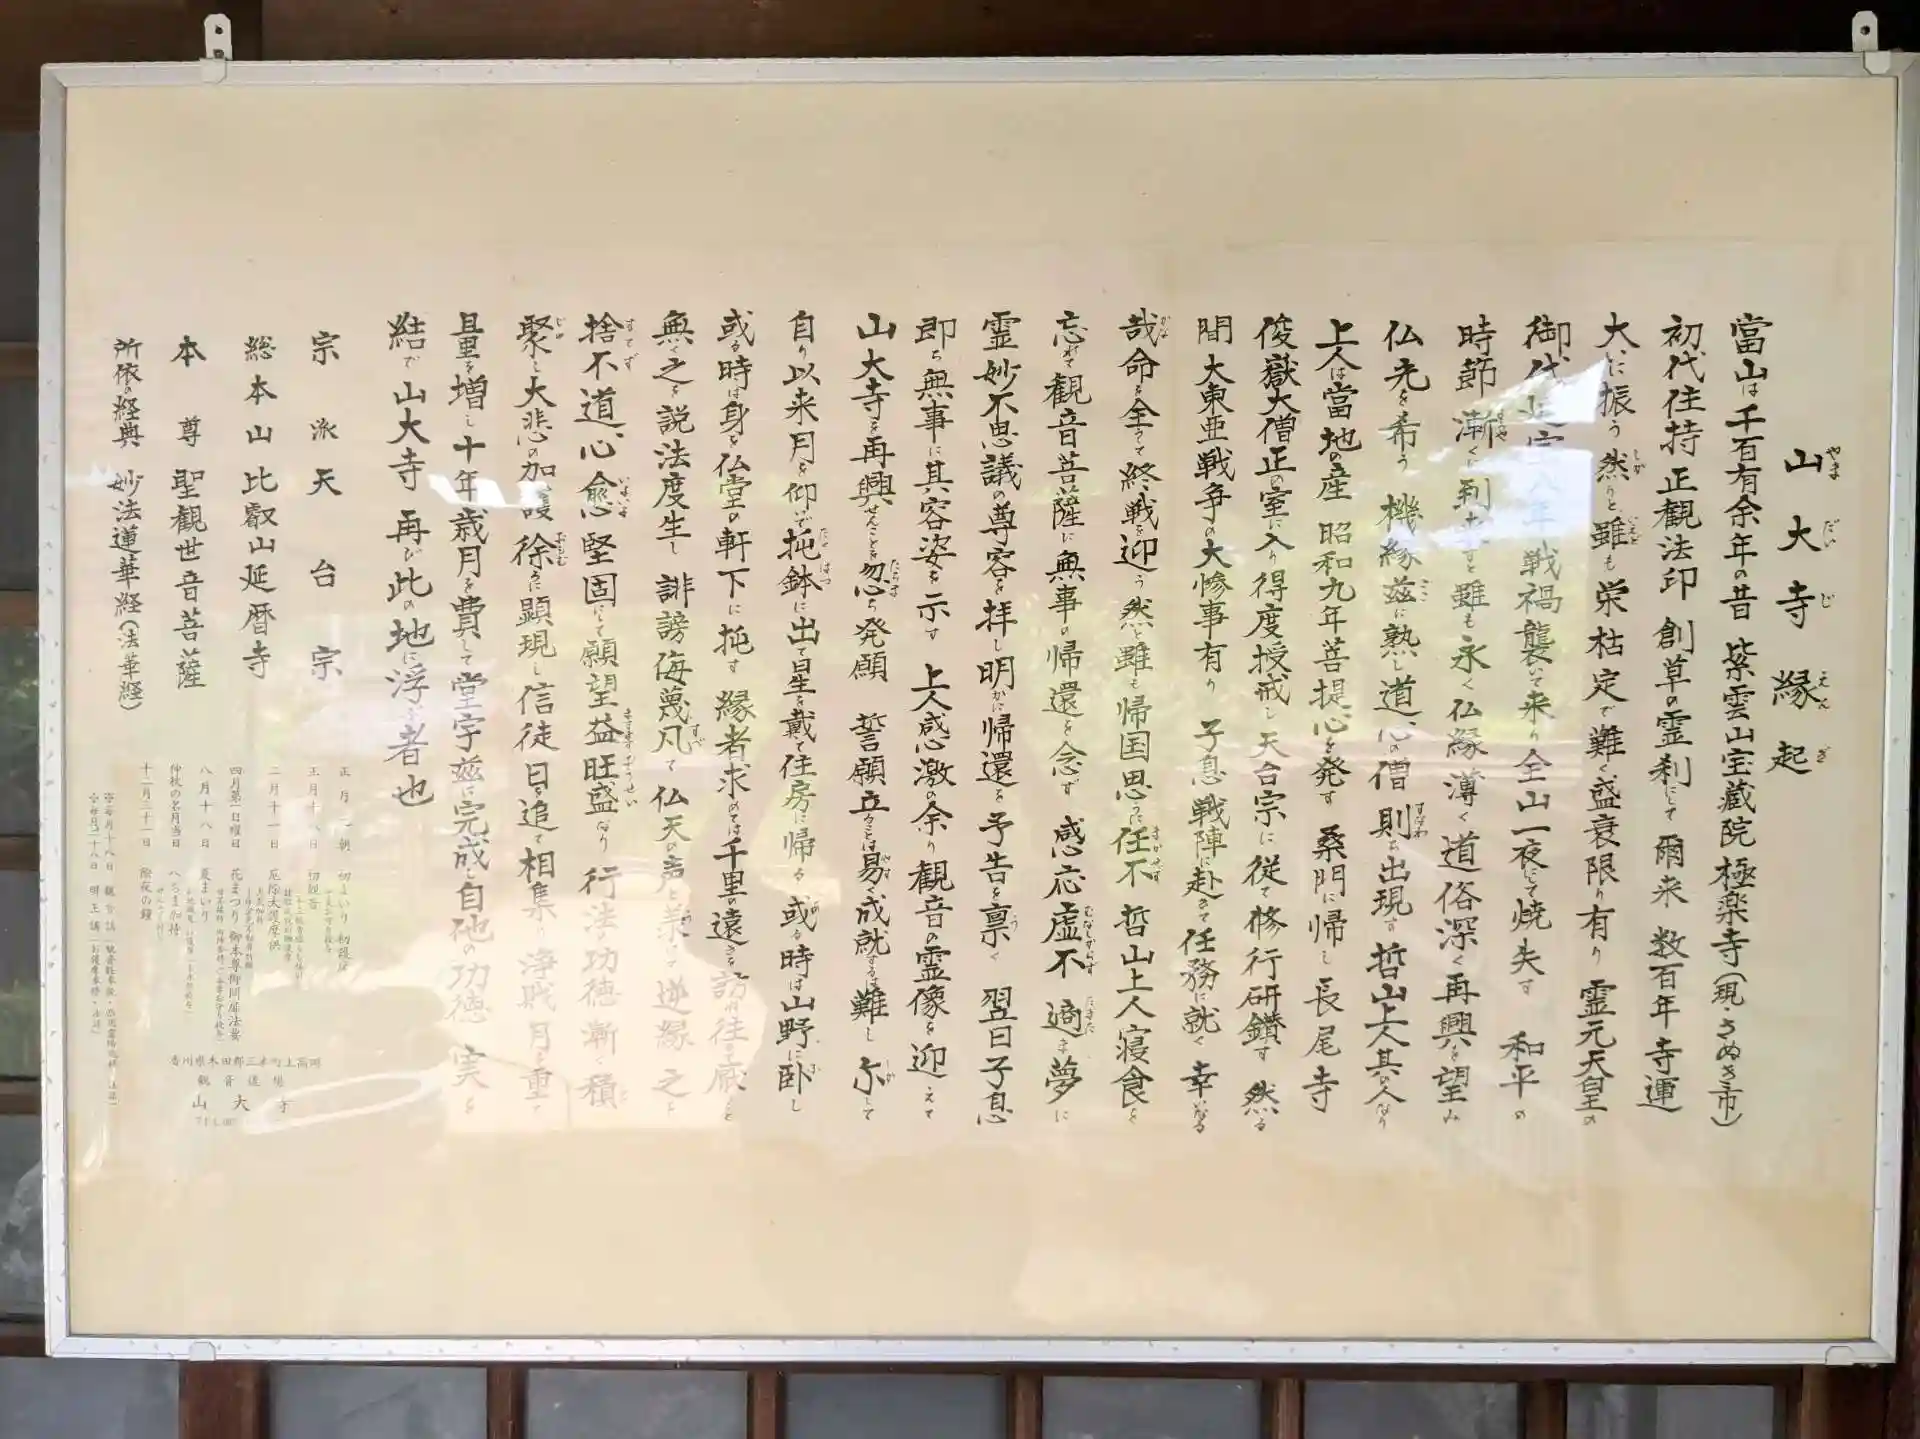 山大寺縁起
當山は千百有余年の昔 紫雲山宝蔵院極楽寺(現・さぬき市)
初代住持 正観法印 創草の霊刹にして 爾来 数百年寺運
大いに振う 然りと雖も 栄枯定め難く盛衰限り有り 霊元天皇の
御代 八年 戦禍襲いて来り全山一夜にて焼失す 和平の
時節 漸くに到来すと雖も永く仏縁薄く道俗深く再興を望み
仏光を希う 機縁茲に熟し道心の僧 則ち出現す 哲山上人其の人なり
上人は當地の産 昭和九年菩提心を発す 桑門に帰し 長尾寺
俊嶽大僧正の室に入り得度授戒し天台宗に従て修行研鑽す 然る
間 大東亜戦争の大惨事有り 子息戦陣に赴きて任務に就く 幸いなる
哉 命を全うて終戦を迎う 然と雖も帰国思うに任不 哲山上人寝食を
忘れて観音菩薩に無事の帰還を念ず 感応虚不 適ま夢に
霊妙不思議の尊容を拝し明かに帰還を予告を禀く 翌日子息
即ち無事に其容姿を示す 上人感激の余り観音の霊像を迎えて
山大寺を再興せんことを忽ち発願 誓願立ることは易く成就するは難し 尓して
自り以来月を仰いで托鉢に出て星を戴て住房に帰る 或る時は山野に卧し
或る時は身を仏堂の軒下に托す 縁者求めては千里の遠きを訪れ往を厭こと
無く之を説法度生し 誹謗侮蔑凡て仏天の声と 逆縁 之を
捨不道心愈堅固にして願望益旺盛なり 行法の功徳漸く積
聚し大悲の加護徐ろに顕現し信徒 日を追て相集り 浄財 月を重て
且量を増し十年歳月を費して堂宇茲に完成し自他の功徳 実を
結で 山大寺 再び此の地に浮 者也
宗派 天台宗
総本山 比叡山延暦寺
本尊 聖観世音菩薩
所依の経典 妙法蓮華経(法華経)
正月 朝 初まいり 初護摩
正月十八日 初観音
二月十一日 厄除大護摩供
四月第一日曜日 花まつり 御本尊御開扉法要
八月十八日 夏まいり
仲秋の名月当日 へちま加持
十二月三十一日 除夜の鐘
※毎月十八日 観音講
※毎月二十八日 明王講
香川県木田郡三木町上高岡
観音道場
山大寺